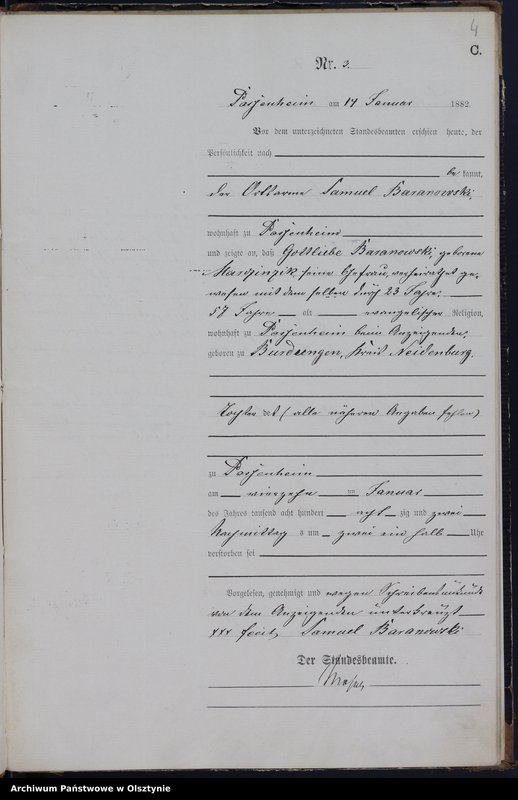 4
C.
Nr. 3.
Passenheim am 14 Januar 1882.
Vor dem unterzeichneten Standesbeamten erschien heute, der
Persönlichkeit nach
be kannt,
der Ortsarme Samuel Baranowski,
wohnhaft zu Passenheim
und zeigte an, daß Gottliebe Baranowski, geborene
seine Ehefrau, verheirathet ge-
wesen mit demselben durch 23 Jahre,
57 Jahre alt evangelischer Religion,
wohnhaft zu Passenheim beim Anzeigenden,
geboren zu Burdungen, Kreis Neidenburg,
Tochter des (alle näheren Angaben fehlen)
zu Passenheim
am vierzehn ten Januar
des Jahres tausend acht hundert acht zig und zwei
Nachmittag s um zwei ein halb Uhr
verstorben sei
Vorgelesen, genehmigt und wegen Schreibensunkunde
von dem Anzeigenden unterkreuzt
+++ fecit, Samuel Baranowski
Der Standesbeamte.
Archiwum Państwowe w Olsztynie